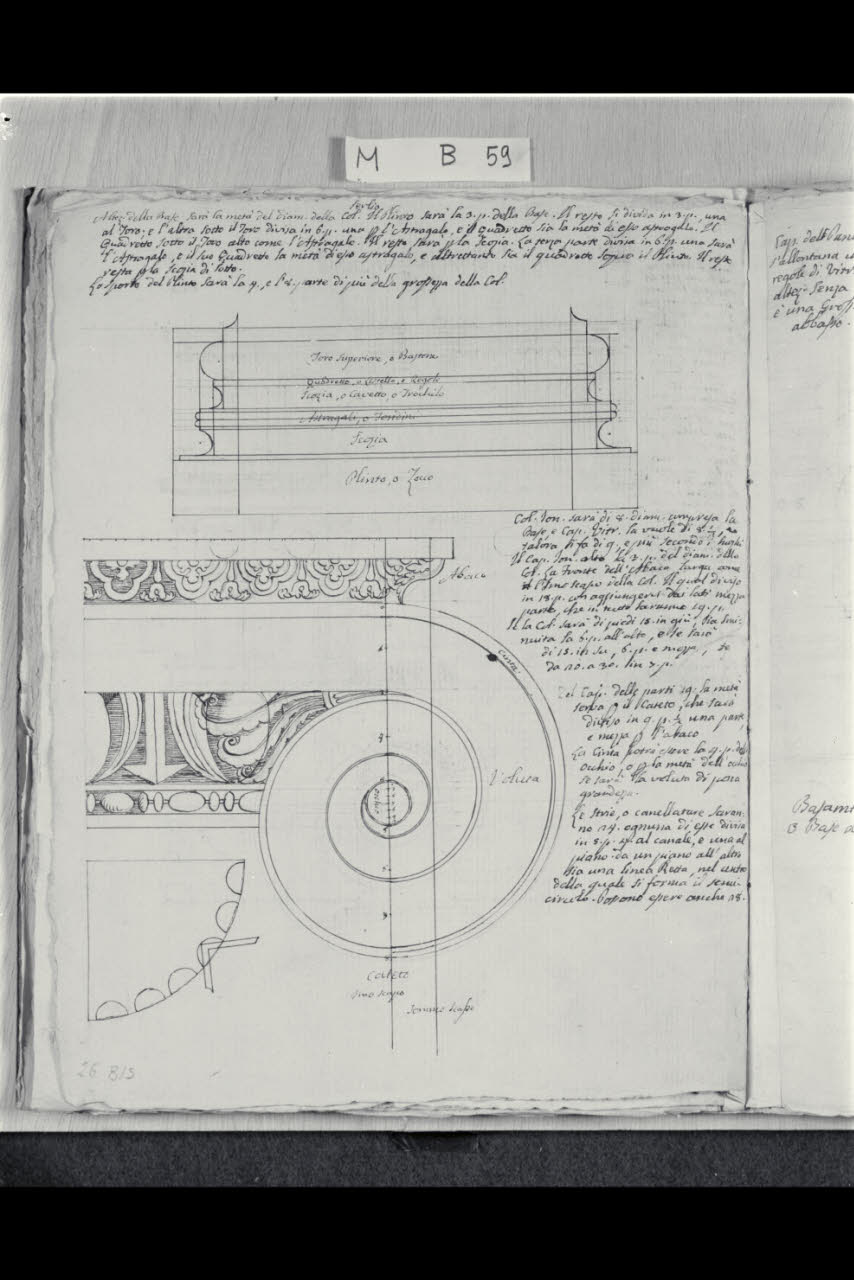 M B 59
Altez. della Base sarà la metà del diam. della Col. Il Plinto sarà la 3. p. della Base. Il resto si divida in 3. p., una
al Toro; e l'altra sotto il Toro divisa in 6. p. una p l'Astragalo, e il quadretto sia la metà di esso astragalo. Il
Quadretto sotto il Toro alto come l'Astragalo. Il resto sarà p la Scozia. La terza parte divisa in 6. p. una sarà
l'Astragalo, e il suo Quadretto la metà di esso astragalo, e altrettanto sia il quadretto sopra il Plinto. Il res
resta p la Scozia di sotto.
Lo sporto del Plinto sarà la 4, e l'8 parte di più della grossezza della Col.
Toro superiore, o Bastone
Quadretto, o Listello, o Regolo
Scozia, o Cavetto, o Trochilo
Astragali, o Tondini
Scozia
Plinto, o Zoco
Col. Jon. sarà di 8. diam. compresa la
Base, e Cap. Vitr. la vuole di 8
talora si fa di 9, e più secondo i luoghi
Il Cap. Jon. alto la 3. p. del diam. della
Col. La fronte dell'Abaco larga come
l'Imo scapo della Col. Il qual diviso
in 18. p. con aggiungervi dai lati mezza
parte, che in tutto saranno 19. p.
Se la Col. sarà di piedi 15. in giù, sia dimi-
nuita la 6. p. all'alto, e se sarà
di 15. in su, 6. p. e mezza, se
da 20. a 30. in 7. p.
Abaco
cinta.
Del Cap. delle parti 19. la metà
serva p il Cateto, che sarà
diviso in 9. p. ½ una parte,
e mezza p l'abaco
La Cinta potrà essere la 4. p. dell
occhio, o p la metà dell'occhio
se sarà la voluta di poca
grandezza.
Voluta
Le strie, o canellature saran-
no 24. ognuna di esse divisa
in 5. p. 4. al canale, e una al
piano. da un piano all'altro
sia una linea Retta, nel centro
della quale si forma il semi-
circolo. Possono essere anche 28.
Cateto
Imo scapo
Sommo scapo
26 BIS
Cap. dell
s'allontana
regole di Vitr
altez. senza
è una Gros
abbasso.
Basam
o Base